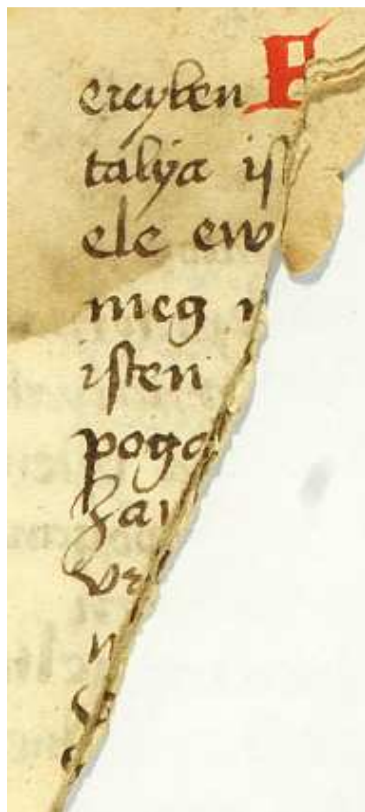 ereyben P
talya iſ
ele ew
meg
iſten
poga
ha
vr
n
v